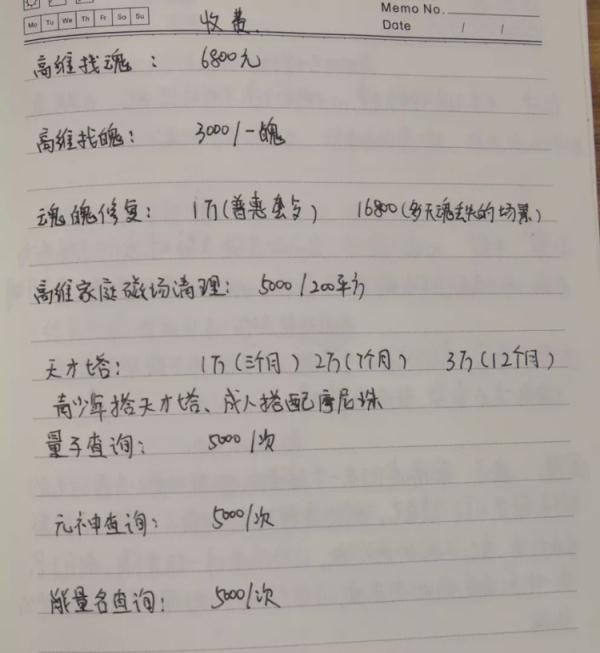 Memo No.
Mo Tu We Th Fr Sa Su
Date / /
收费
高维找魂： 6800元
高维找魄： 3000/一魄
魂魄修复： 1万(普惠蛮乡) 16800(多天魂丢失的场景)
高维家庭磁场清理： 5000/200平方
天才塔： 1万(三个月) 2万(7个月) 3万(12个月)
青少年搭天才塔、成人搭配摩尼珠
量子查询： 5000/次
元神查询： 5000/次
能量名查询： 5000/次